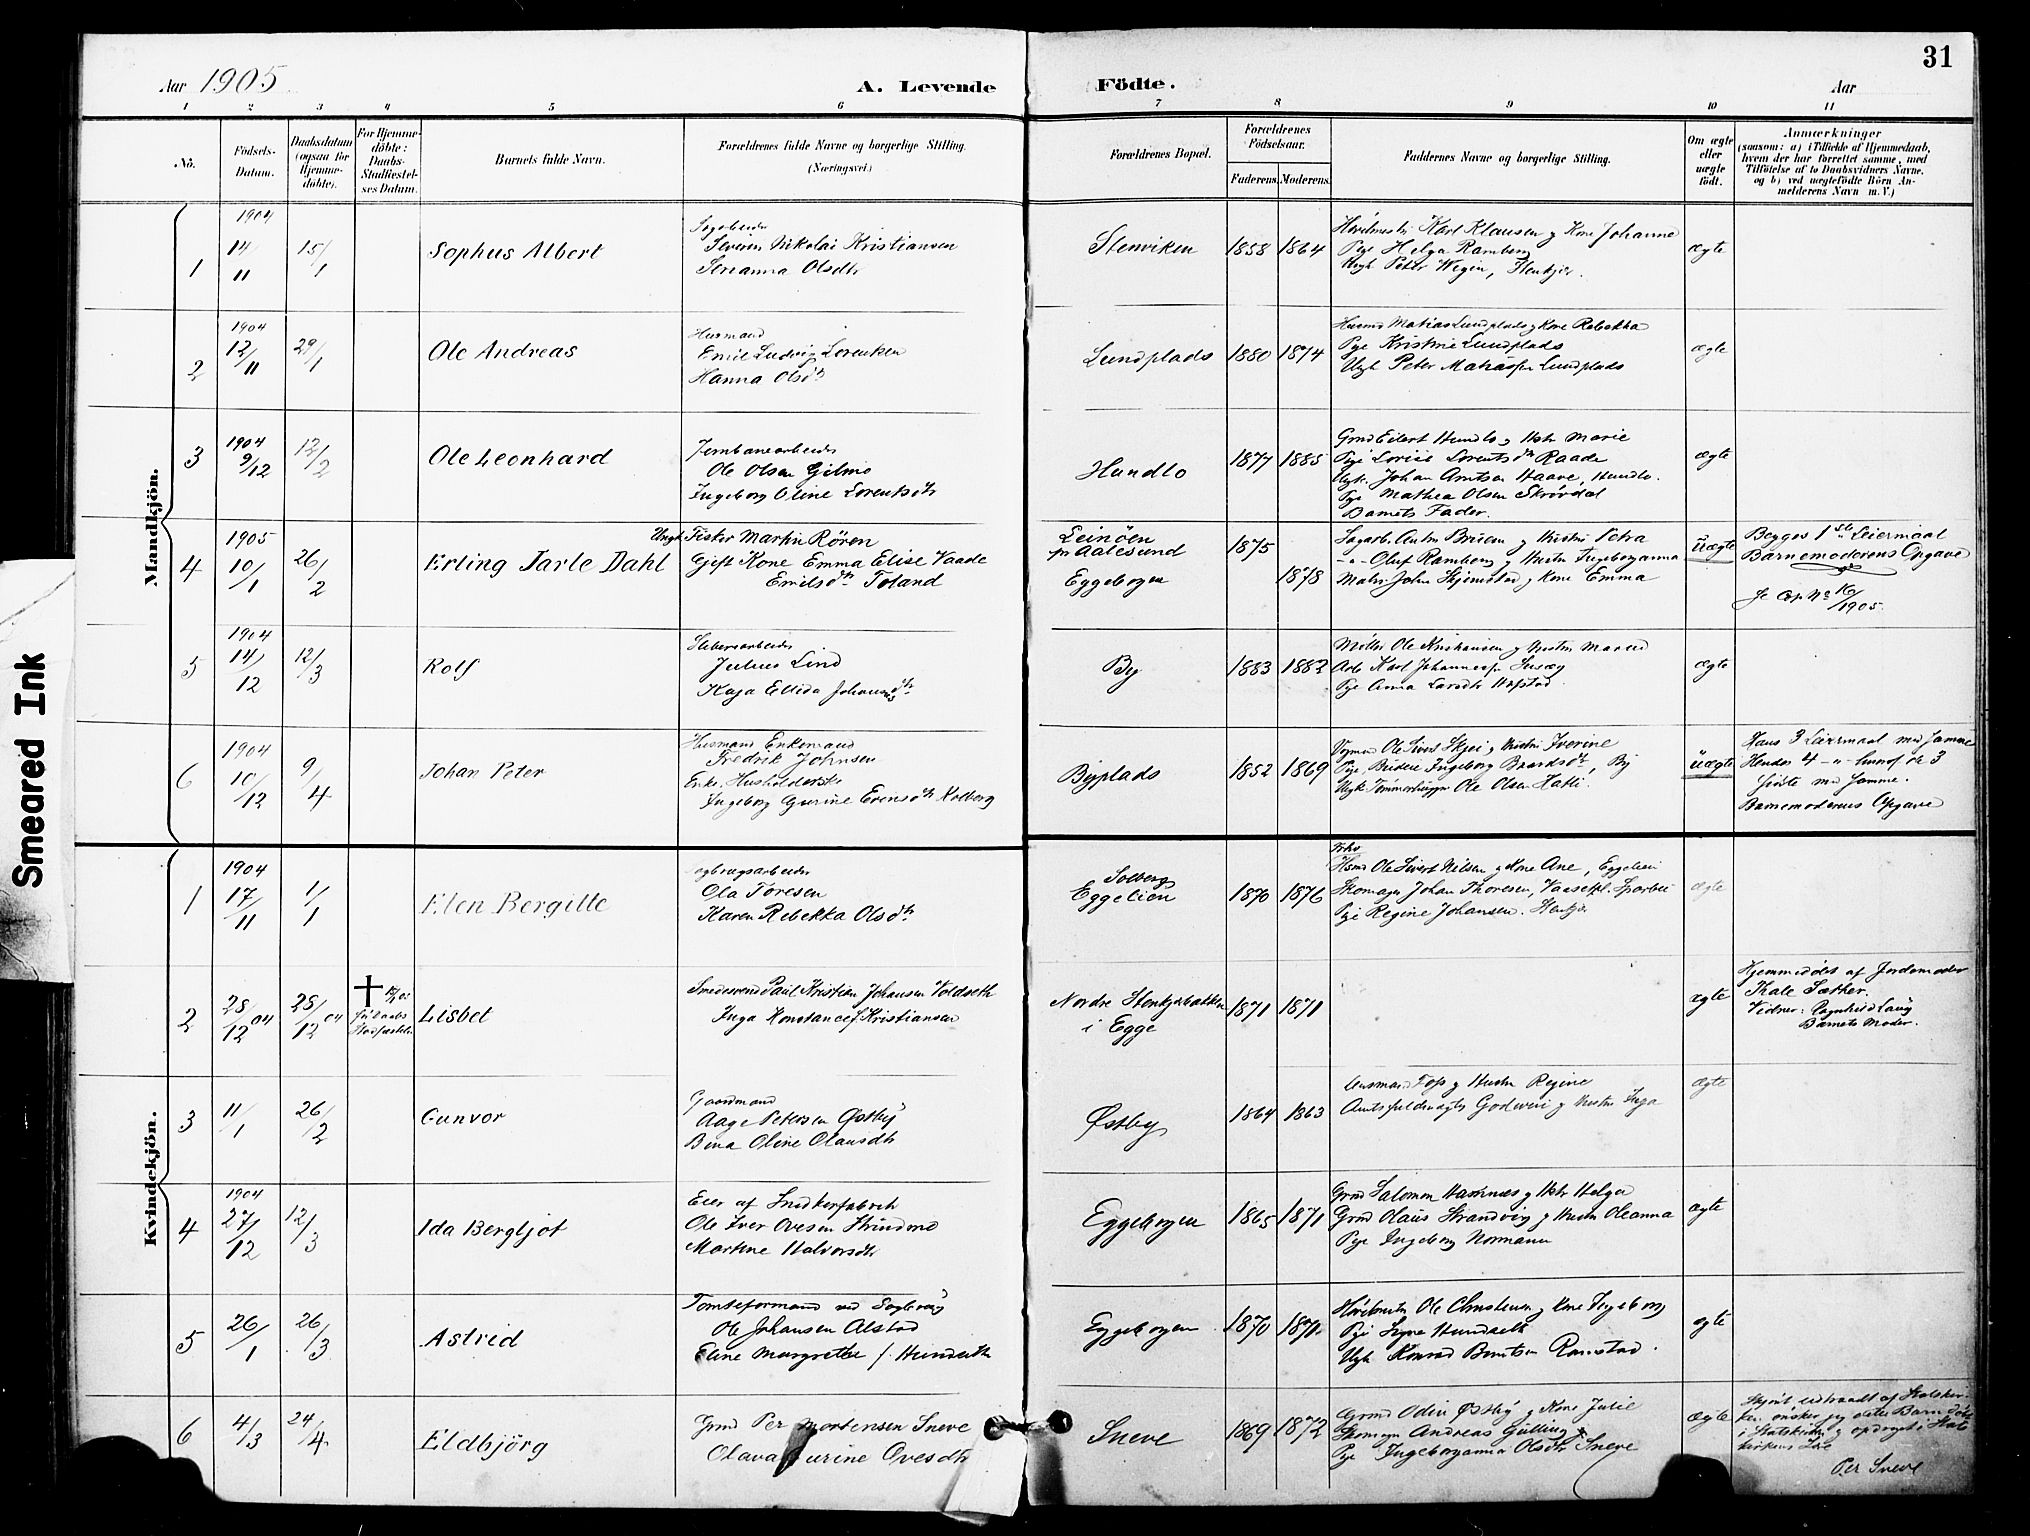 31
Aar 1905
A. Levende
Födte.
Aar
1 2 3 4 5 6 7 8 9 10 11
No.
Födsels-
Datum.
Daabsdatum
(ogsaa for
Hjemme-
döbte).
For Hjemme-
döbte:
Daabs-
Stadfæstel-
ses Datum.
Barnets fulde Navn.
Forældrenes fulde Navne og borgerlige Stilling.
(Næringsvei)
Forældrenes Bopæl.
Forældrenes
Födselsaar.
Faderens. Moderens.
Faddernes Navne og borgerlige Stilling.
Om ægte
eller
uægte
födt.
Anmærkninger
(saasom: a) i Tilfælde af Hjemmedaab,
hvem der har forrettet samme, med
Tilföielse af to Daabsvidners Navne.
og b) ved uægtefödte Börn An-
melderens Navn m. V.)
Mandkjön.
1
1904
14/11
15/1
Sophus Albert
Severin Nikolai Kristiansen
Serianna Olsdtr
Stenviken
1858 1864
Karl Klausen g Kone Johanna
Pige Helga Ramberg
Ungk Peter Wegin, Stenkjær.
ægte
2
1904
12/11
29/1
Ole Andreas
Husmand
Emil Ludvig Lorentsen
Hanna Olsdtr
Lundplads
1880 1874
Husmd Matias Lundplads g Kone Rebekka
Pige Kristine Lundplads
Ungk Peter Matiass. Lundplads
ægte
3
1904
9/12
12/2
Ole Leonhard
Jernbanearbeider
Ole Olsen Gilmo
Ingeborg Oline Lorentsdtr
Hundlo
1877 1885
Grmd Eilert Hundlo g Hstr Marie
Pige Lovise Lorentsdtr Raade
Ungk. Johan Arntsen Haave, Hundlo.
Pige Mathea Olsen Skrövdal
Barnets Fader.
ægte
4
1905
10/1
26/2
Erling Jarle Dahl
Ungk. Fisker Martin Rören
Gift Kone Emma Elise Vaade
Emilsdtr Foland
Leinöen
pr Aalesund
Eggebogen
1875
1878
Sagarb. Anton Bruem g Hustru Petra
-"- Oluf Ramberg g Hustru Ingeborganna
Maler John Skjerstad g Kone Emma
uægte
Begges 1ste Leiermaal
Barnemoderens Opgave
1905.
5
1904
14/12
12/3
Rolf
Sliberiarbeider
Julius Lind
Kaja Ellida Johansdtr
By
1883 1882
Möller Ole Kristiansen g Hustru
Arb Karl Johanness.
Pige Anna Larsdtr Hafstad.
ægte
6
1904
10/12
9/4
Johan Peter
Husmand Enkemand
Fredrik Johnsen
Enke, Husholderske
Ingeborg Gurine Evensdtr Kolberg
Byplads
1852 1869
Ole Sivert Skjei g Hustru Iverine
Pige, Budeie Ingeborg Bardsdtr, By
Ungk Tømmerhugger Ole Olsen Hatli.
uægte
Hans 3 Leiermaal med samme
Hendes 4 -"- hvoraf de 3
sidste med samme.
Barnemoderens Opgave
Kvindekjön.
1
1904
17/11
1/1
Elen Bergitte
Ola Toresen
Karen Rebekka Olsdtr
Solberg
Eggelien
1870 1876
Hsmd Ole Sivert Nilsen g Kone Ane, Eggelien
Skomager Johan Thoresen,
Pige Regine Johansen.
ægte
2
28/12 04
28/12 04
Lisbet
Smedesvend Paul Kristian Johansen Voldseth
Inga Konstance f. Kristiansen
Nordre Stenkjærbakken
i Egge
1871 1871
ægte
Hjemmedöbt af Jordemoder
Kale Sæther.
Vidner: Ragnhild Laug
Barnets Moder.
3
11/1
26/2
Gunvor
Gaardmand
Aage Petersen Østby
Bina Oline Olausdtr
Østby
1864 1863
g Hustru Regine
g Hustru Inga
ægte
4
1904
27/12
12/3
Ida Bergljot
Eier af Snedkerfabrik
Ole Iver Ovesen Strindmo
Martine Halvorsdtr
Eggebogen
1865 1871
Grmd Salomon Hamnes g Hstr Helga
Grmd Olaus Strandvig g Hustru Oleanna
Pige Ingeborg Normann
ægte
5
26/1
26/3
Astrid
Tomteformand ved Sagbrug
Ole Johansen Alstad
Eline Margrethe f. Hundseth
Eggebogen
1870 1871
Ole Christensen g Kone Ingeborg
Pige Signe Hundseth
Ungk Konrad Berntsen Ramstad.
ægte
6
4/3
24/4
Eldbjörg
Grmd Per Mortensen Sneve
Olava Gurine Ovesdtr
Sneve
1869 1872
Grmd Odin Østby g Kone Julie
Skomager Andreas Gulling
Pige Ingeborganna Olsdtr Sneve
ægte
Skjönt udtraadt af Statskir-
ken, önsker jeg dette Barn döbt
i Statskirken g opdraget i Stats
kirkens Lære
Per Sneve
Smeared Ink